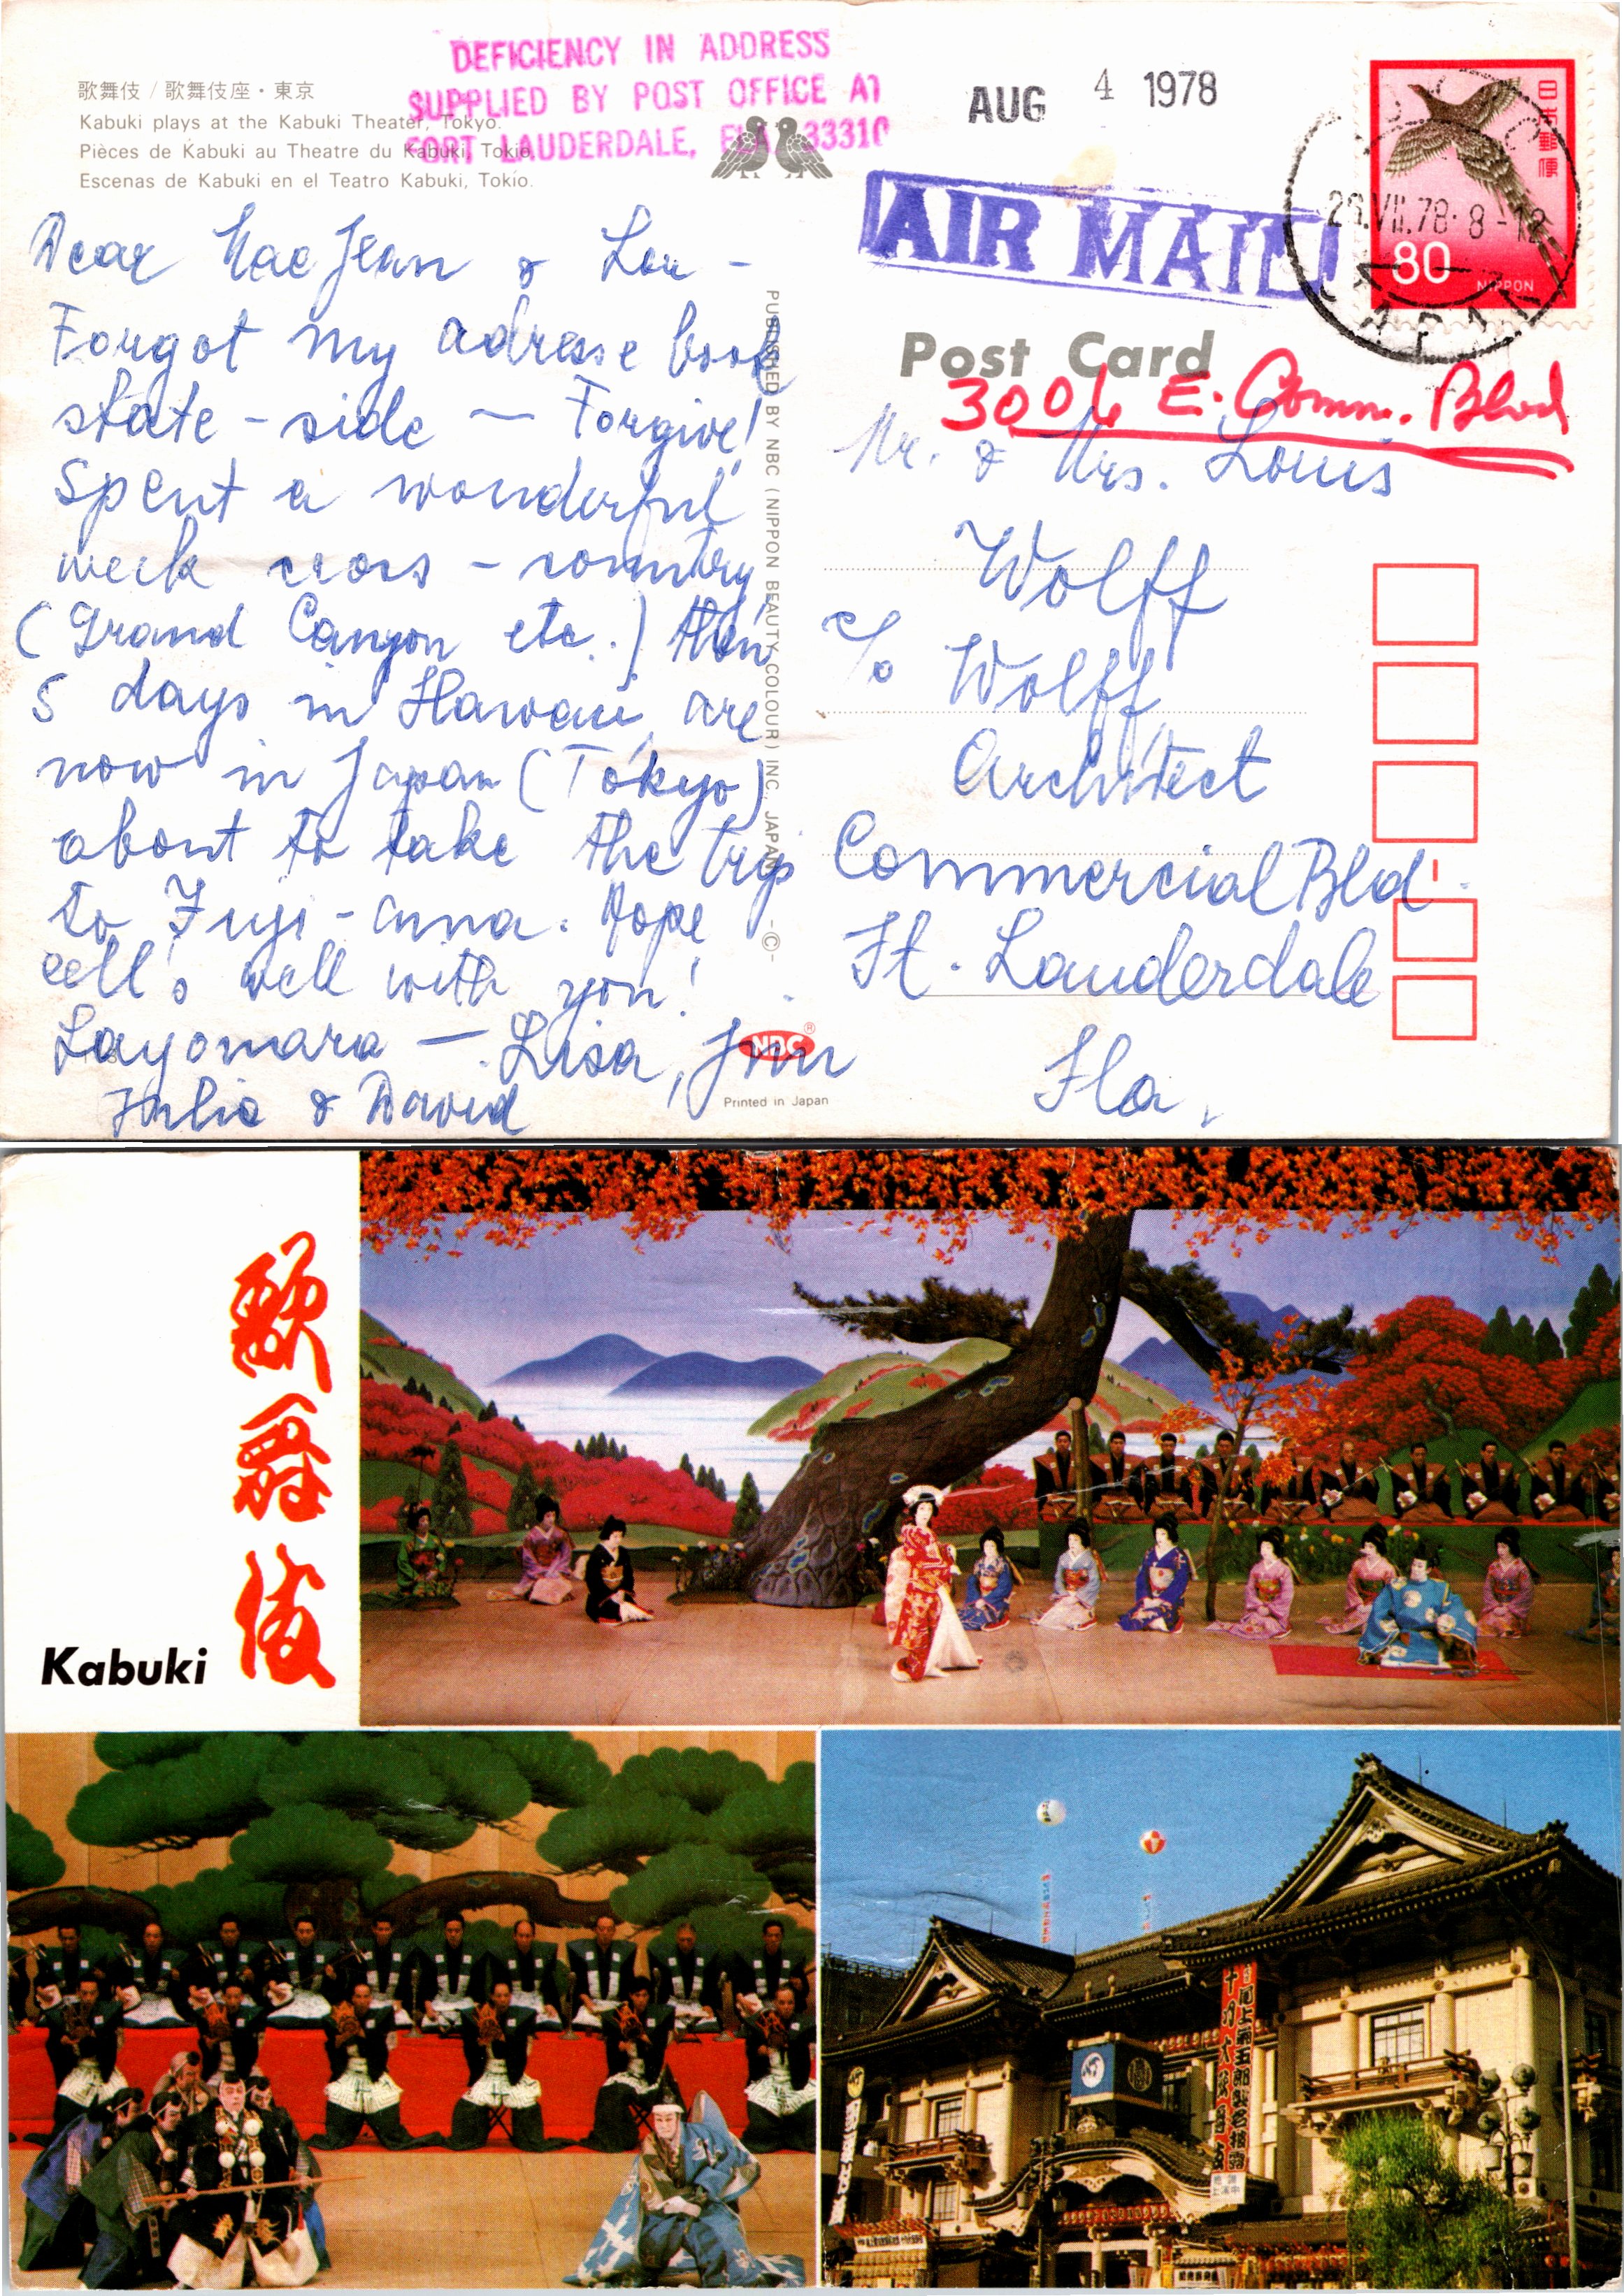 歌舞伎 / 歌舞伎座・東京
Kabuki plays at the Kabuki Theater, Tokyo.
Pièces de Kabuki au Theatre du Kabuki, Tokio.
Escenas de Kabuki en el Teatro Kabuki, Tokio.
DEFICIENCY IN ADDRESS
SUPPLIED BY POST OFFICE AT
FORT LAUDERDALE, FLA 33310
AUG 4 1978
AIR MAIL
日本郵便
80
NIPPON
29.VII.78. 8-12
JAPAN
Post Card
3006 E. Comm. Blvd
Dear Mae Jean & Lou -
Forgot my adresse book
state - side — Forgive!
Spent a wonderful
week cross - country
(Grand Canyon etc..) then
5 days in Hawaii, are
now in Japan (Tokyo)
about to take the trip
to Fuji - ama. Hope
all's well with you!
Sayomara — Lisa, Jim
Julie & David
PUBLISHED BY NBC (NIPPON BEAUTY COLOUR) INC., JAPAN -©-
Mr. & Mrs. Louis
Wolff
c/o Wolff,
Architect
Commercial Bld.
Ft. Lauderdale
Fla.
NBC ®
Printed in Japan
歌舞伎
Kabuki